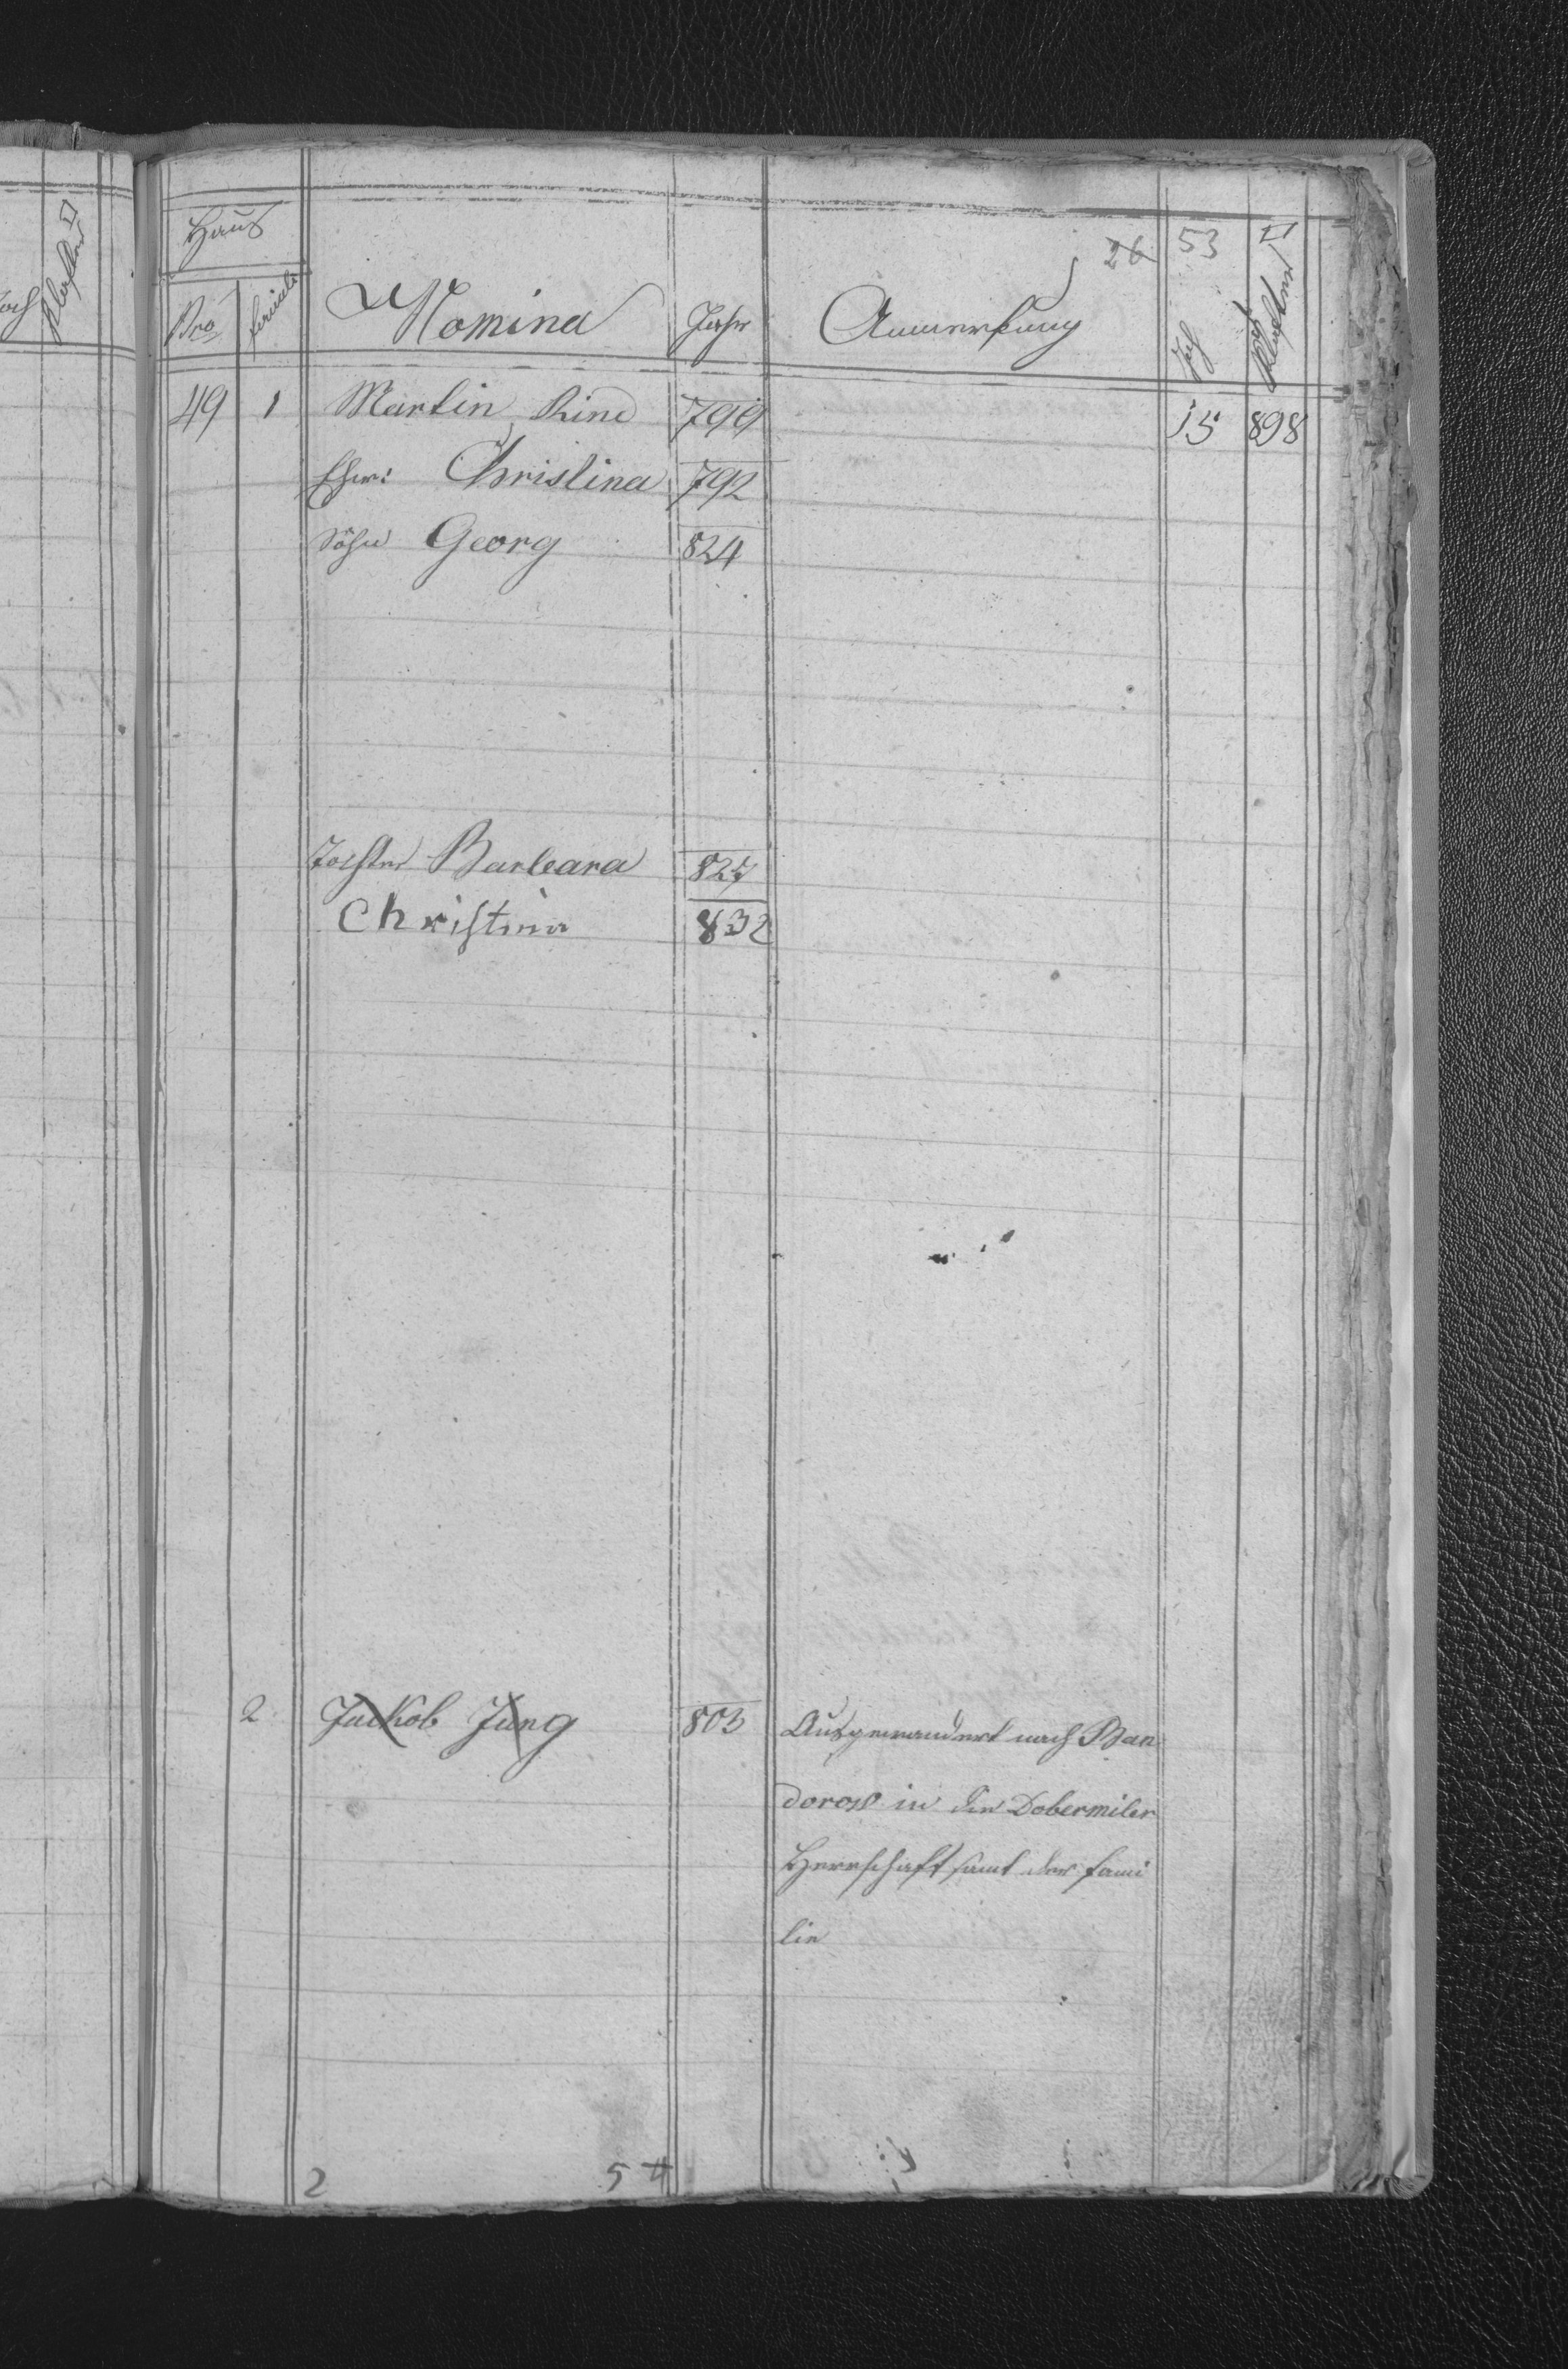 Haus
26 53
Nro Familie Nomina Jahr Anmerkung Joch □ Klafter
49 1 Martin Rind 799 15 898
Ehw: Christina 792
Söhne Georg 824
Tochter Barbara 827
Christina 832
2 Jackob Jung 803 Ausgewandert nach Ban
dorow in der Dobermiler
Herrschaft samt der Fami
lie
2 5